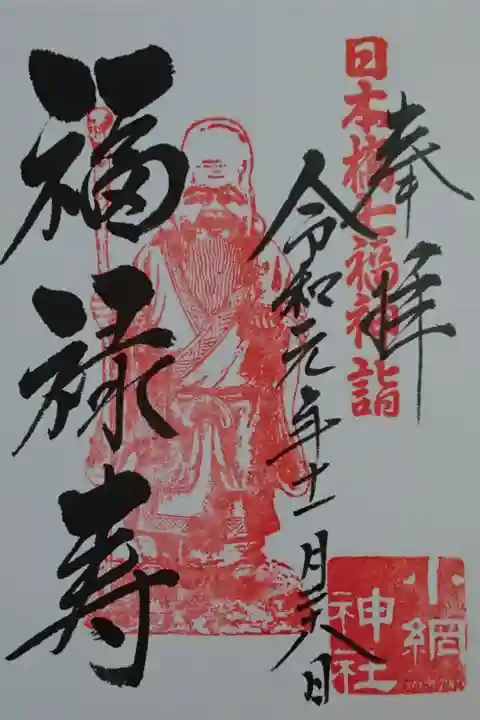 奉拝
日本橋七福神詣
令和元年十一月二八日
福禄寿
小網
神社